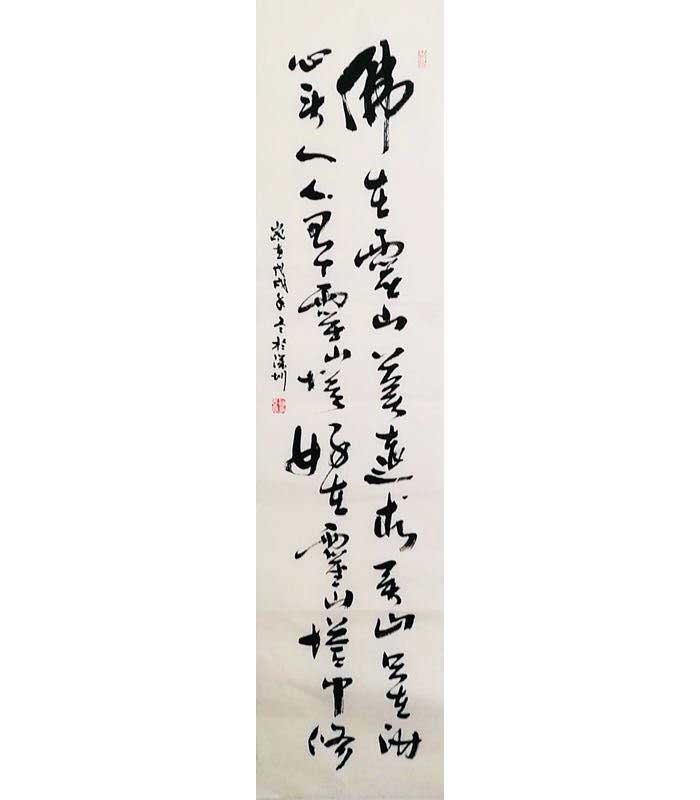 佛在靈山莫遠求灵山只在汝
心头人人有个靈山塔好在靈山塔中修
歲在戊戌年冬於深圳